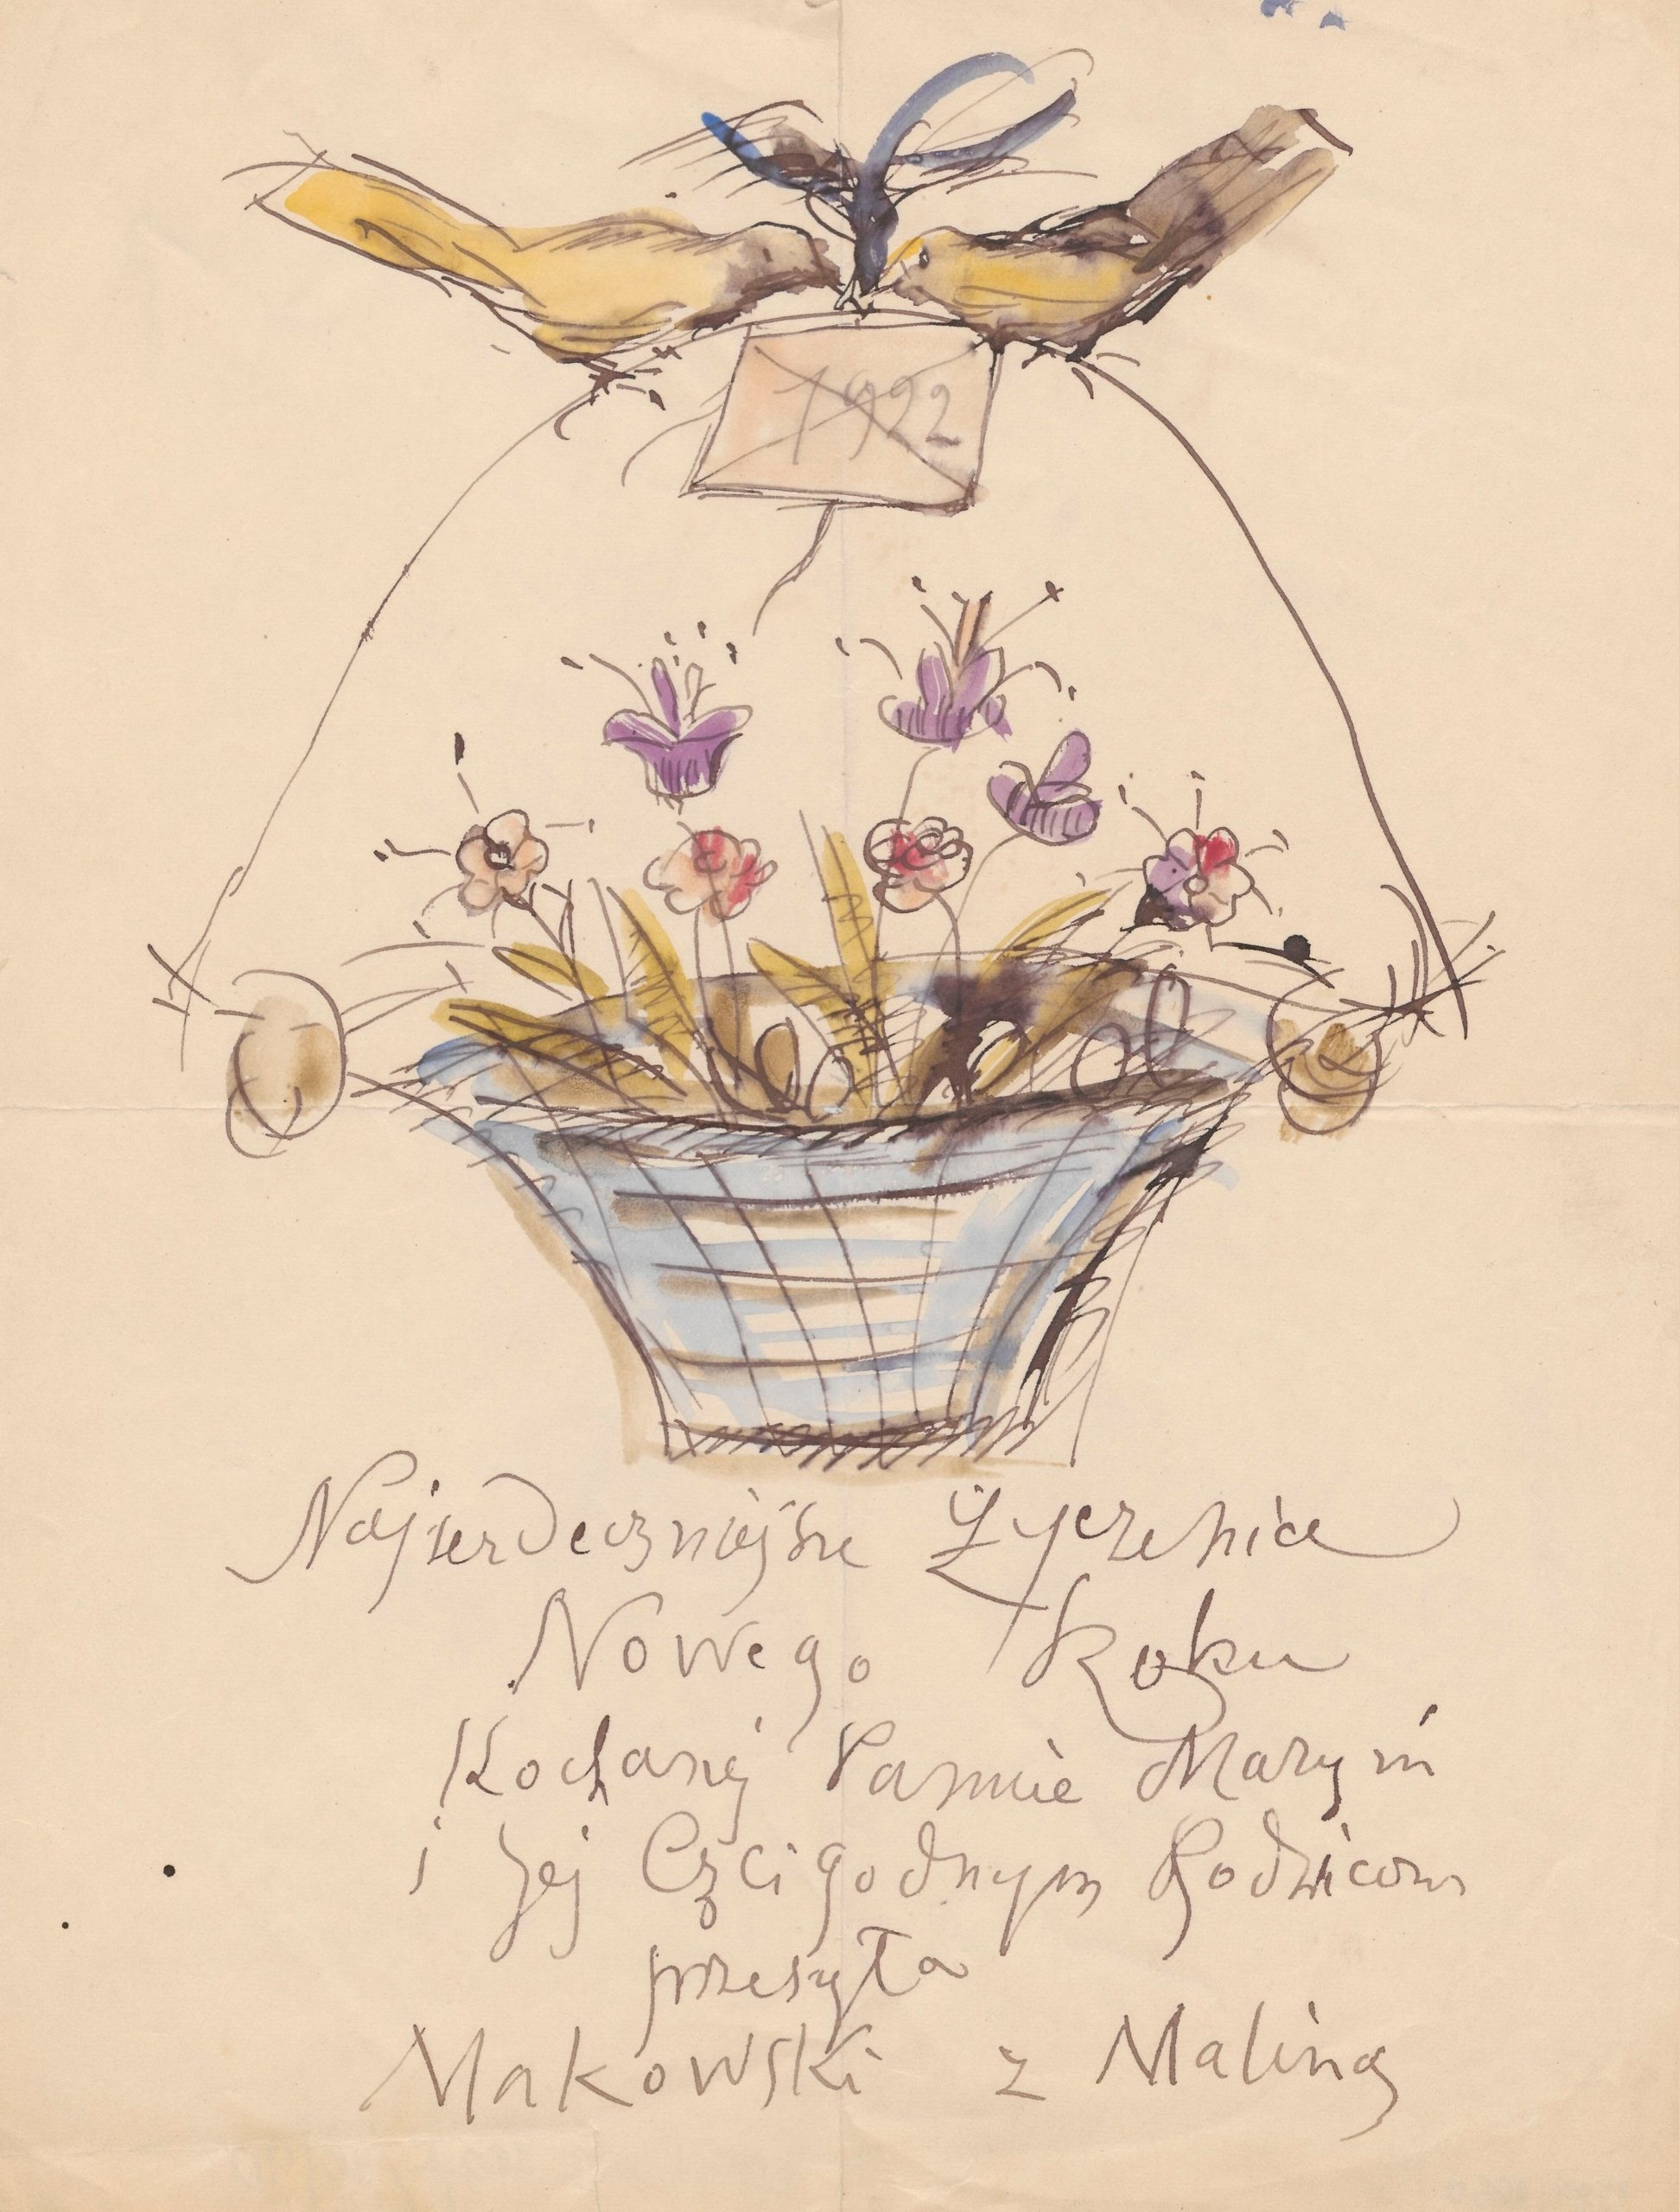 1922
Najserdeczniejsze Życzenia
Nowego Roku
Kochanej Pannie Maryni
i Jej Czcigodnym Rodzicom
przesyła
Makowski z Maliną